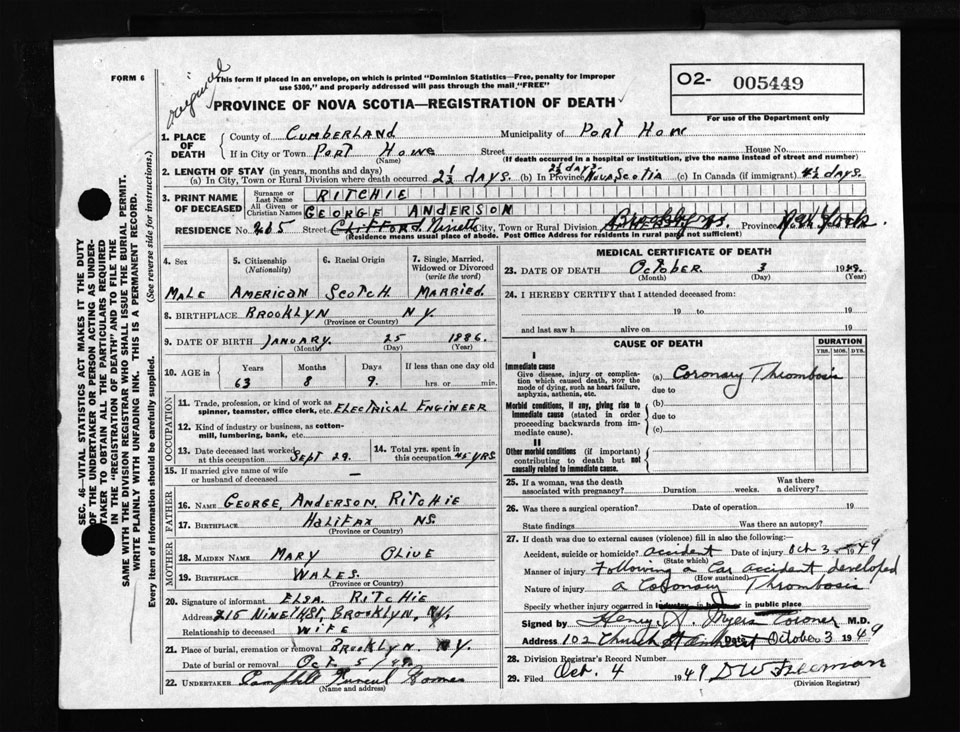 FORM 6
original
This form if placed in an envelope, on which is printed "Dominion Statistics—Free, penalty for improper
use $300," and properly addressed will pass through the mail "FREE"
PROVINCE OF NOVA SCOTIA—REGISTRATION OF DEATH
O2- 005449
For use of the Department only
1. PLACE OF DEATH
County of CUMBERLAND Municipality of PORT HOWE
If in City or Town PORT HOWE Street House No.
(Name) (If death occurred in a hospital or institution, give the name instead of street and number)
2. LENGTH OF STAY (in years, months and days)
(a) In City, Town or Rural Division where death occurred 2½ days. (b) In Province 2½ days Nova Scotia (c) In Canada (if immigrant) 4½ days.
3. PRINT NAME OF DECEASED
Surname or Last Name RITCHIE
All Given or Christian Names GEORGE ANDERSON
RESIDENCE No. 265 Street City, Town or Rural Division, Province
(Residence means usual place of abode. Post Office Address for residents in rural parts not sufficient)
4. Sex
MALE
5. Citizenship
(Nationality)
AMERICAN
6. Racial Origin
SCOTCH
7. Single, Married, Widowed or Divorced
(write the word)
MARRIED.
8. BIRTHPLACE BROOKLYN NY
(Province or Country)
9. DATE OF BIRTH JANUARY. 25 1886.
(Month) (Day) (Year)
10. AGE in Years Months Days If less than one day old
63 8 9. hrs. or min.
OCCUPATION
11. Trade, profession, or kind of work as
spinner, teamster, office clerk, etc. ELECTRICAL ENGINEER
12. Kind of industry or business, as cotton-
mill, lumbering, bank, etc.
13. Date deceased last worked
at this occupation SEPT 29.
14. Total yrs. spent in
this occupation YRS
15. If married give name of wife
or husband of deceased —
FATHER
16. NAME GEORGE, ANDERSON, RITCHIE
17. BIRTHPLACE HALIFAX NS.
(Province or Country)
MOTHER
18. MAIDEN NAME MARY OLIVE
19. BIRTHPLACE WALES.
(Province or Country)
20. Signature of informant ELSA RITCHIE
Address 215 NINETH ST, BROOKLYN, NY.
Relationship to deceased WIFE
21. Place of burial, cremation or removal BROOKLYN. NY.
Date of burial or removal OCT. 5/49
22. UNDERTAKER Campbell Funeral Homes
(Name and address)
MEDICAL CERTIFICATE OF DEATH
23. DATE OF DEATH OCTOBER. 3 1949.
(Month) (Day) (Year)
24. I HEREBY CERTIFY that I attended deceased from:
19 to 19
and last saw h alive on 19
CAUSE OF DEATH
DURATION
YRS. MOS. DYS.
I
Immediate cause
Give disease, injury or complica-
tion which caused death, NOT the
mode of dying, such as heart failure,
asphyxia, asthenia, etc.
(a) Coronary Thrombosis
due to
Morbid conditions, if any, giving rise to
immediate cause (stated in order
proceeding backwards from im-
mediate cause).
(b)
due to
(c)
II
Other morbid conditions (if important)
contributing to death but not
causally related to immediate cause.
25. If a woman, was the death
associated with pregnancy? Duration weeks. Was there a delivery?
26. Was there a surgical operation? Date of operation 19
State findings Was there an autopsy?
27. If death was due to external causes (violence) fill in also the following:—
Accident, suicide or homicide? accident Date of injury Oct 3 1949
(State which)
Manner of injury Following a Car accident developed
(How sustained)
Nature of injury a Coronary Thrombosis
Specify whether injury occurred in industry, in home or in public place
Signed by Henry J. Myers Coroner M.D.
Address 102 Church St Amherst Date October 3 1949
28. Division Registrar's Record Number
29. Filed Oct. 4 1949 D W Freeman
(Division Registrar)
SEC. 46—VITAL STATISTICS ACT MAKES IT THE DUTY
OF THE UNDERTAKER OR PERSON ACTING AS UNDER-
TAKER TO OBTAIN ALL THE PARTICULARS REQUIRED
IN THE "REGISTRATION OF DEATH" AND TO FILE THE
SAME WITH THE DIVISION REGISTRAR WHO SHALL ISSUE THE BURIAL PERMIT.
WRITE PLAINLY WITH UNFADING INK. THIS IS A PERMANENT RECORD.
Every item of information should be carefully supplied. (See reverse side for instructions.)